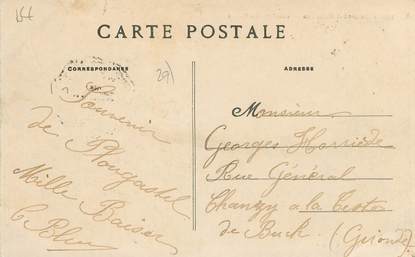 CARTE POSTALE
CORRESPONDANCE
ADRESSE
29
Souvenir
de Plougastel
Mille Baisers
Monsieur
Georges
Rue Général
Chanzy a la Teste
de Buch (Gironde)